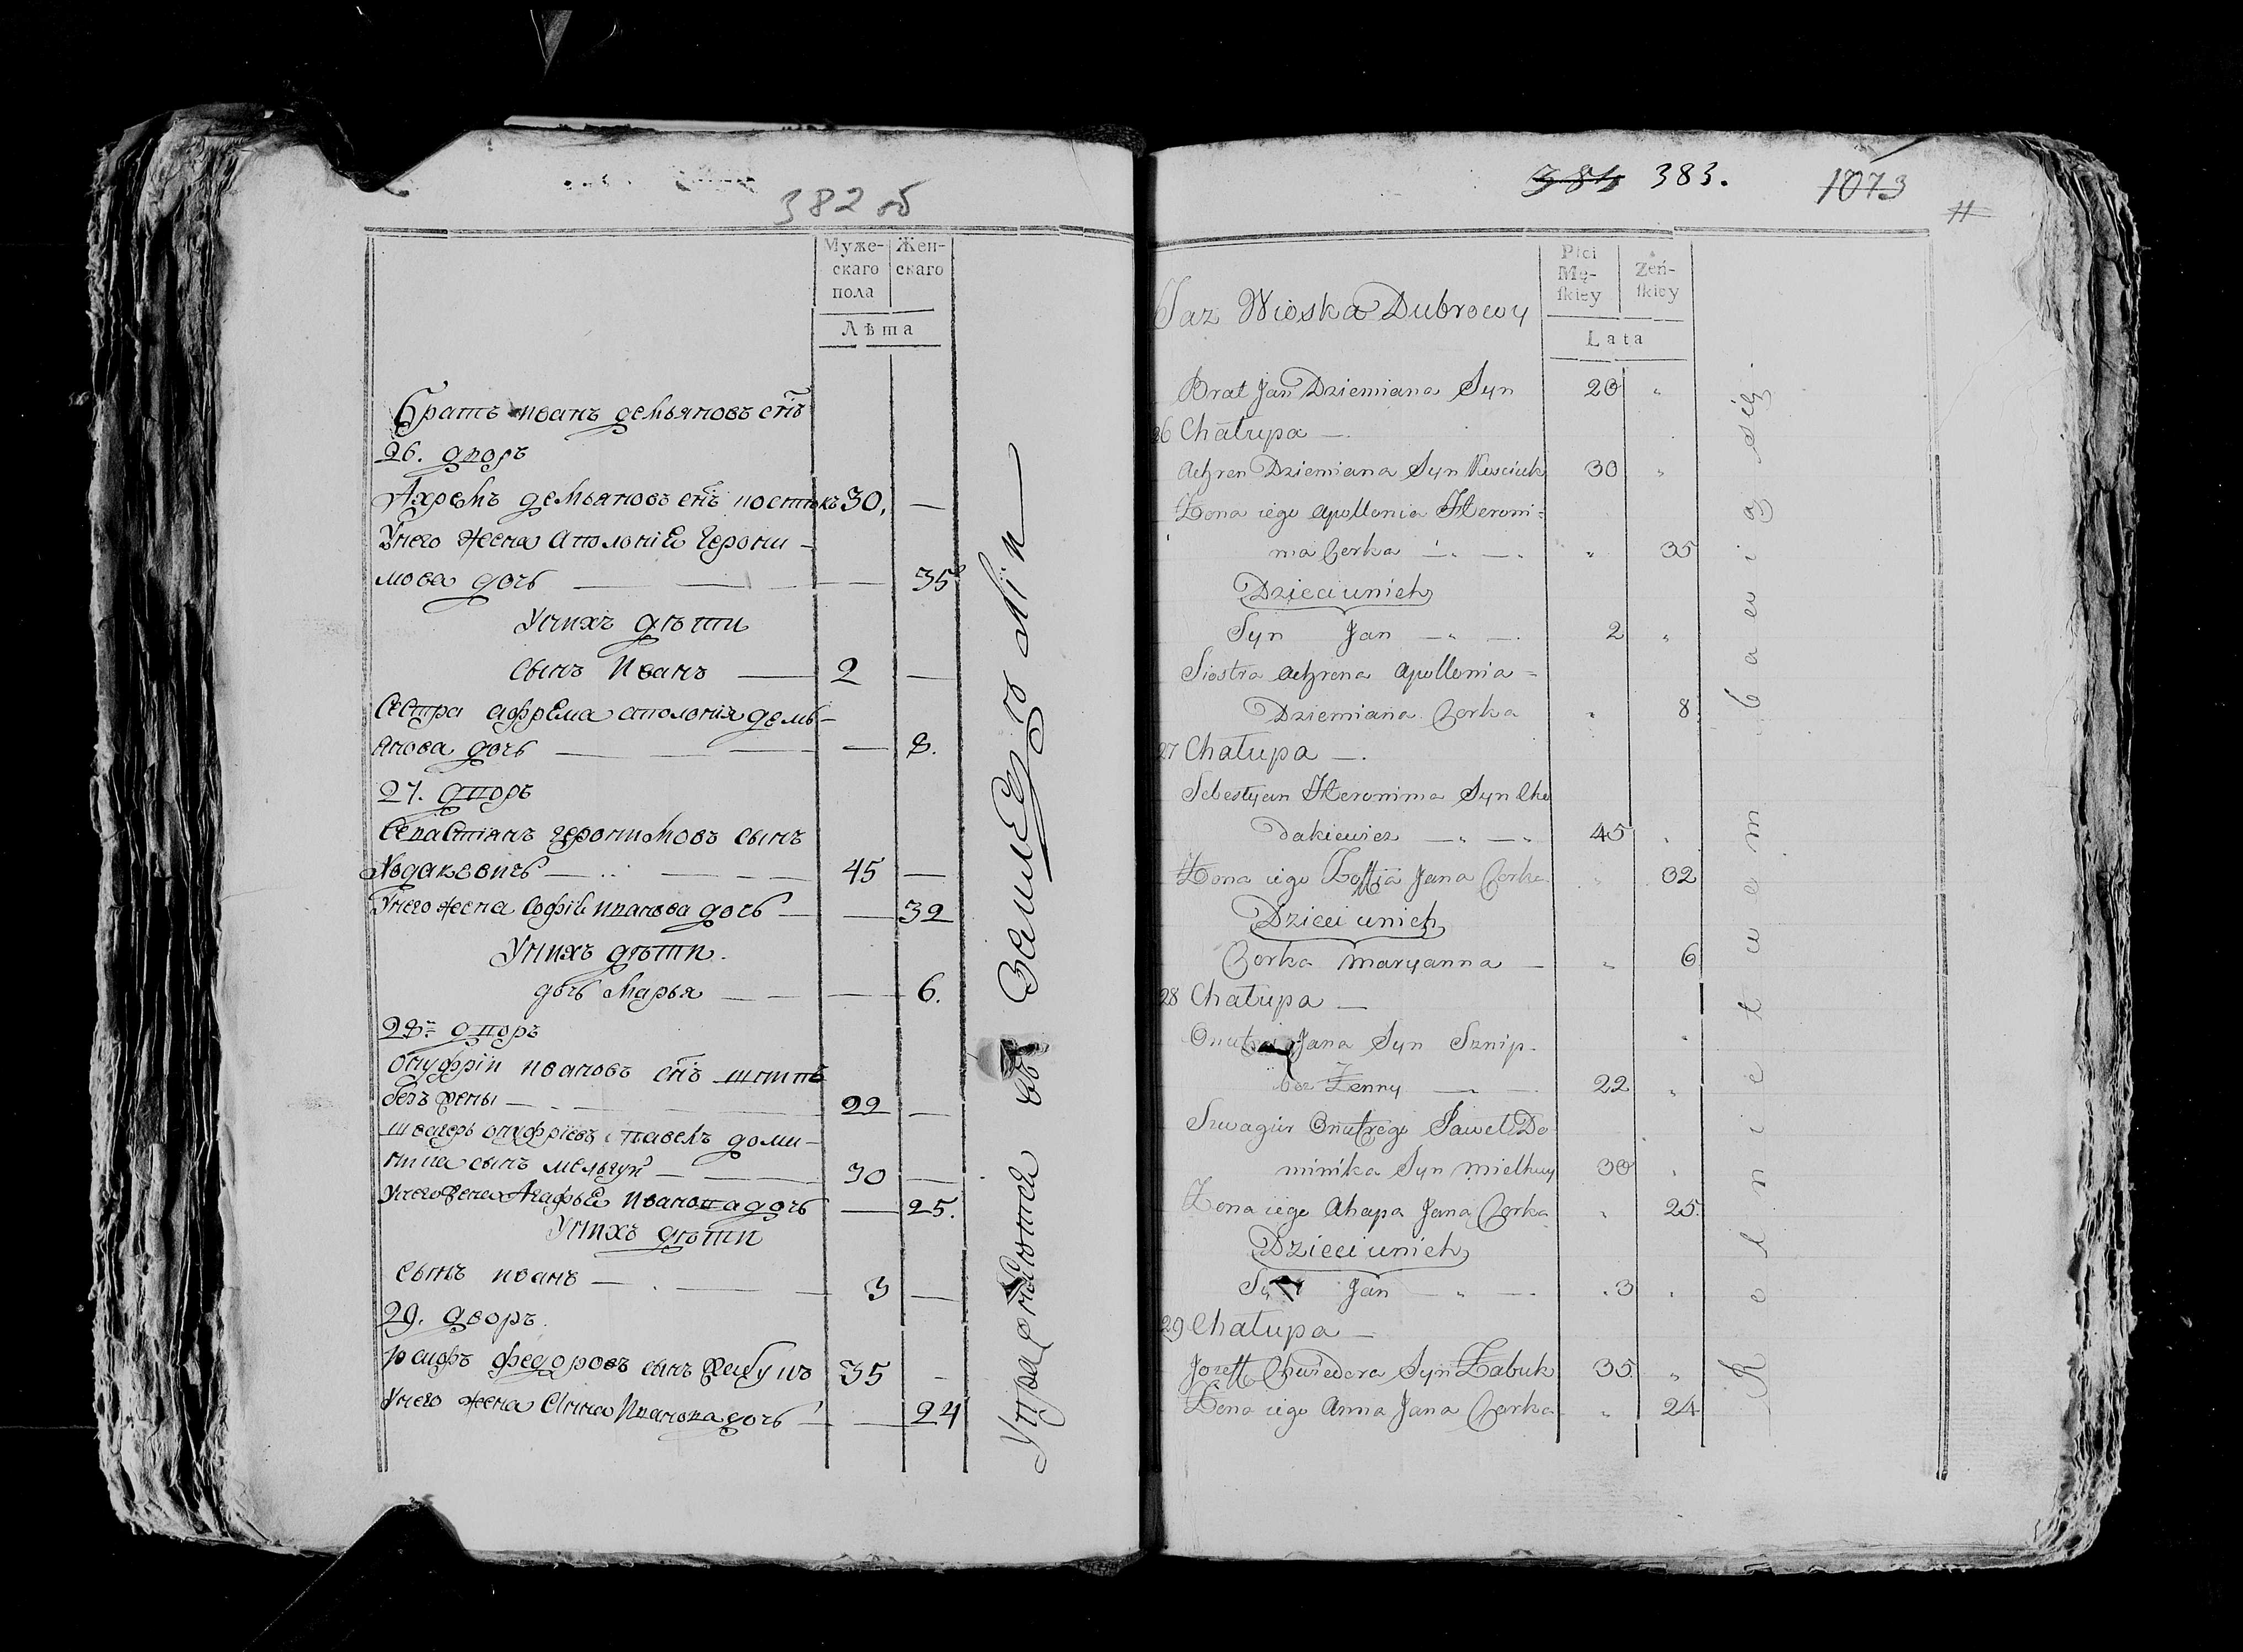 382 об
Муже-
скаго
пола
Жен-
скаго
Лѣта
Братъ иванъ демьяновъ снъ
26. дворъ
Ахремъ демьяновъ снъ 30, —
Унего жена Аполонiя Герони-
мова дочь — 35
Унихъ дѣти
сынъ Иванъ — 2 —
Сестра афрема аполонiя демь-
янова дочь — 8.
27. дворъ
Севастiянъ геронимовъ сынъ
Хадакевичъ — 45 —
Унего жена Софiя иванова дочь — 32
Унихъ дѣти.
дочь Марья — 6.
28. дворъ
Онуфрiй ивановъ снъ шнипъ
безъ жены — 22 —
швагеръ онуфрiевъ павелъ доми-
ника сынъ — 30 —
Унего жена Агафья Иванова дочь — 25.
Унихъ дѣти
сынъ иванъ — 3 —
29. дворъ.
федоровъ сынъ жабукъ 35 -
Унего жена Анна Иванова дочь — 24
Управляются въ Земледѣлiи
384 383. 1073
11
Płci
Mę-
skiey
Żeń-
skiey
Lata
Taz Wioska Dubrowy
Brat Jan Dziemiana Syn 20 "
26 Chałupa —.
Achren Dziemiana Syn Kusciuk 30 "
Żona iego Apollonia Heroni-
ma Corka — " 35
Dzieci unich
Syn Jan — 2 "
Siostra Achrena Apollonia -
Dziemiana Corka " 8.
27 Chałupa —.
Sebestyan Heronima Syn Cho
dakiewicz — 45 "
Żona iego Zoffia Jana Corka " 32
Dzieci unich
Corka Maryanna — " 6
28 Chałupa —
Jana Syn Sznip.
bez Żenny — 22 "
Szwagier Onufrego Pawel Do
minika Syn 30 "
Żona iego Ahapa Jana Corka " 25.
Dzieci unich
Syn Jan — 3 "
29 Chałupa —
Jozeff Chwiedora Syn Żabuk 35 "
Żona iego Anna Jana Corka " 24
Rolnictwem bawią się.